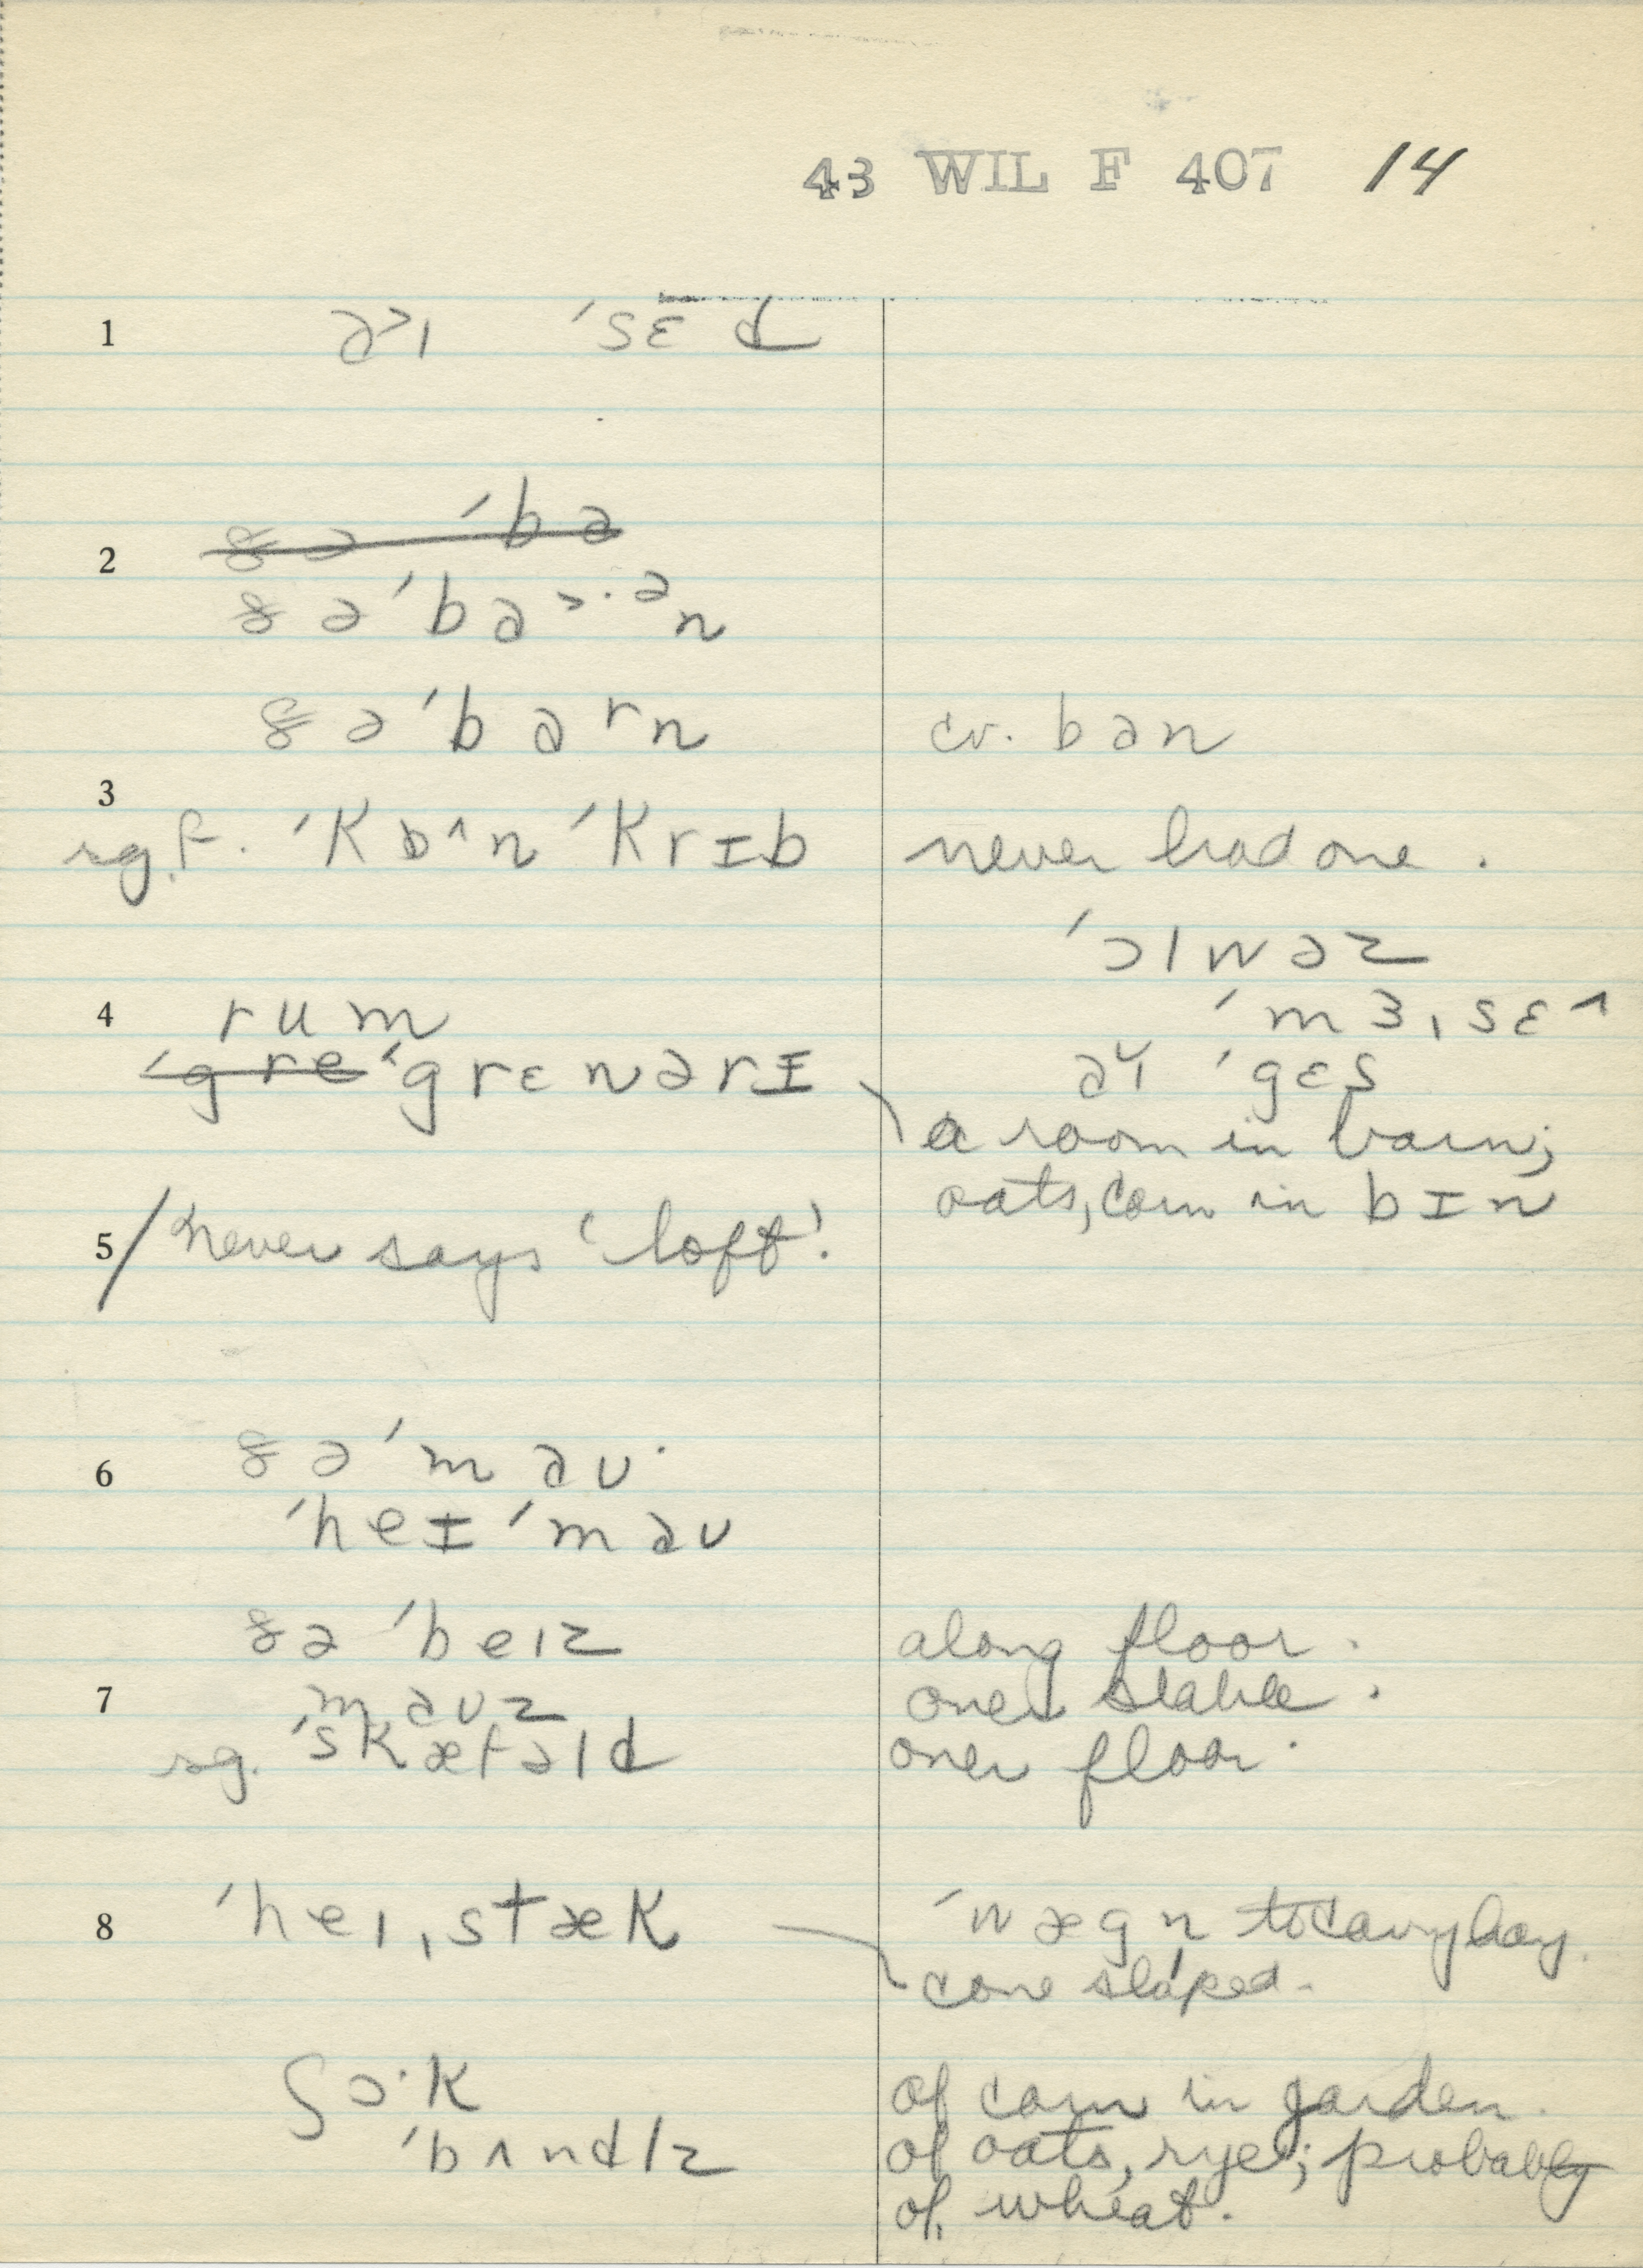 43 WIL F 407 14
1 a˃ɪ ˈsɛd
ðə ˈba
2
ðə ˈba˃·ᵊn
ðə ˈbaʳn cv. ban
3
sg. f. ˈkɒ^n ˈkrɪb never had one.
ˈɔlwəz
4 rum ˈmɜˌsɛ^
ˈgre ˈgrɛnərɪ aɪ ˈgɛs
a room in barn;
oats, corn in bɪn
5 / never says 'loft'.
6 ðə ˈmaʊ·
ˈheɪ ˈmaʊ
ðə ˈbeɪz along floor.
7 maʊz over stable.
sg. ˈskæfəld over floor.
8 ˈheɪˌstæk ˈwægn̩ to carry hay.
cone shaped.
ʃɔ·k of corn in garden.
ˈbʌndlz of oats, rye; probably
of wheat.